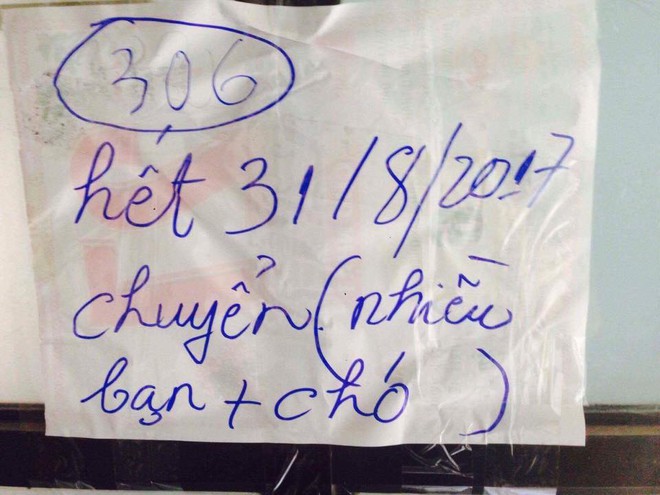 306
hết 31/8/2017
chuyển (nhiều
bạn + chó)